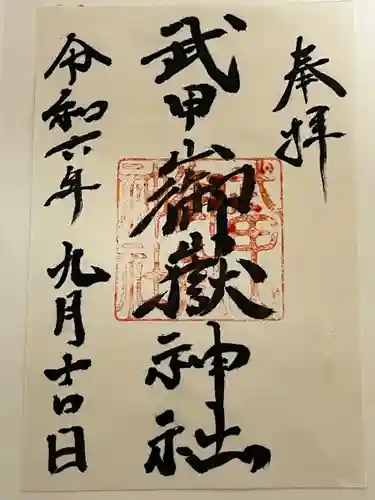 奉拝
武甲山御嶽神社
令和六年九月吉日